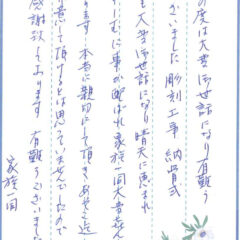 の度は大変お世話になり有難う
ございました 彫刻工事 納骨式
も大変お世話になり晴天に恵まれ
に事が運ばれ家族一同大変喜ん
ります 本者に親切にして頂き
意して頂けるとは思ってませんでしたので
感謝致しております 有難うございました
家族一同